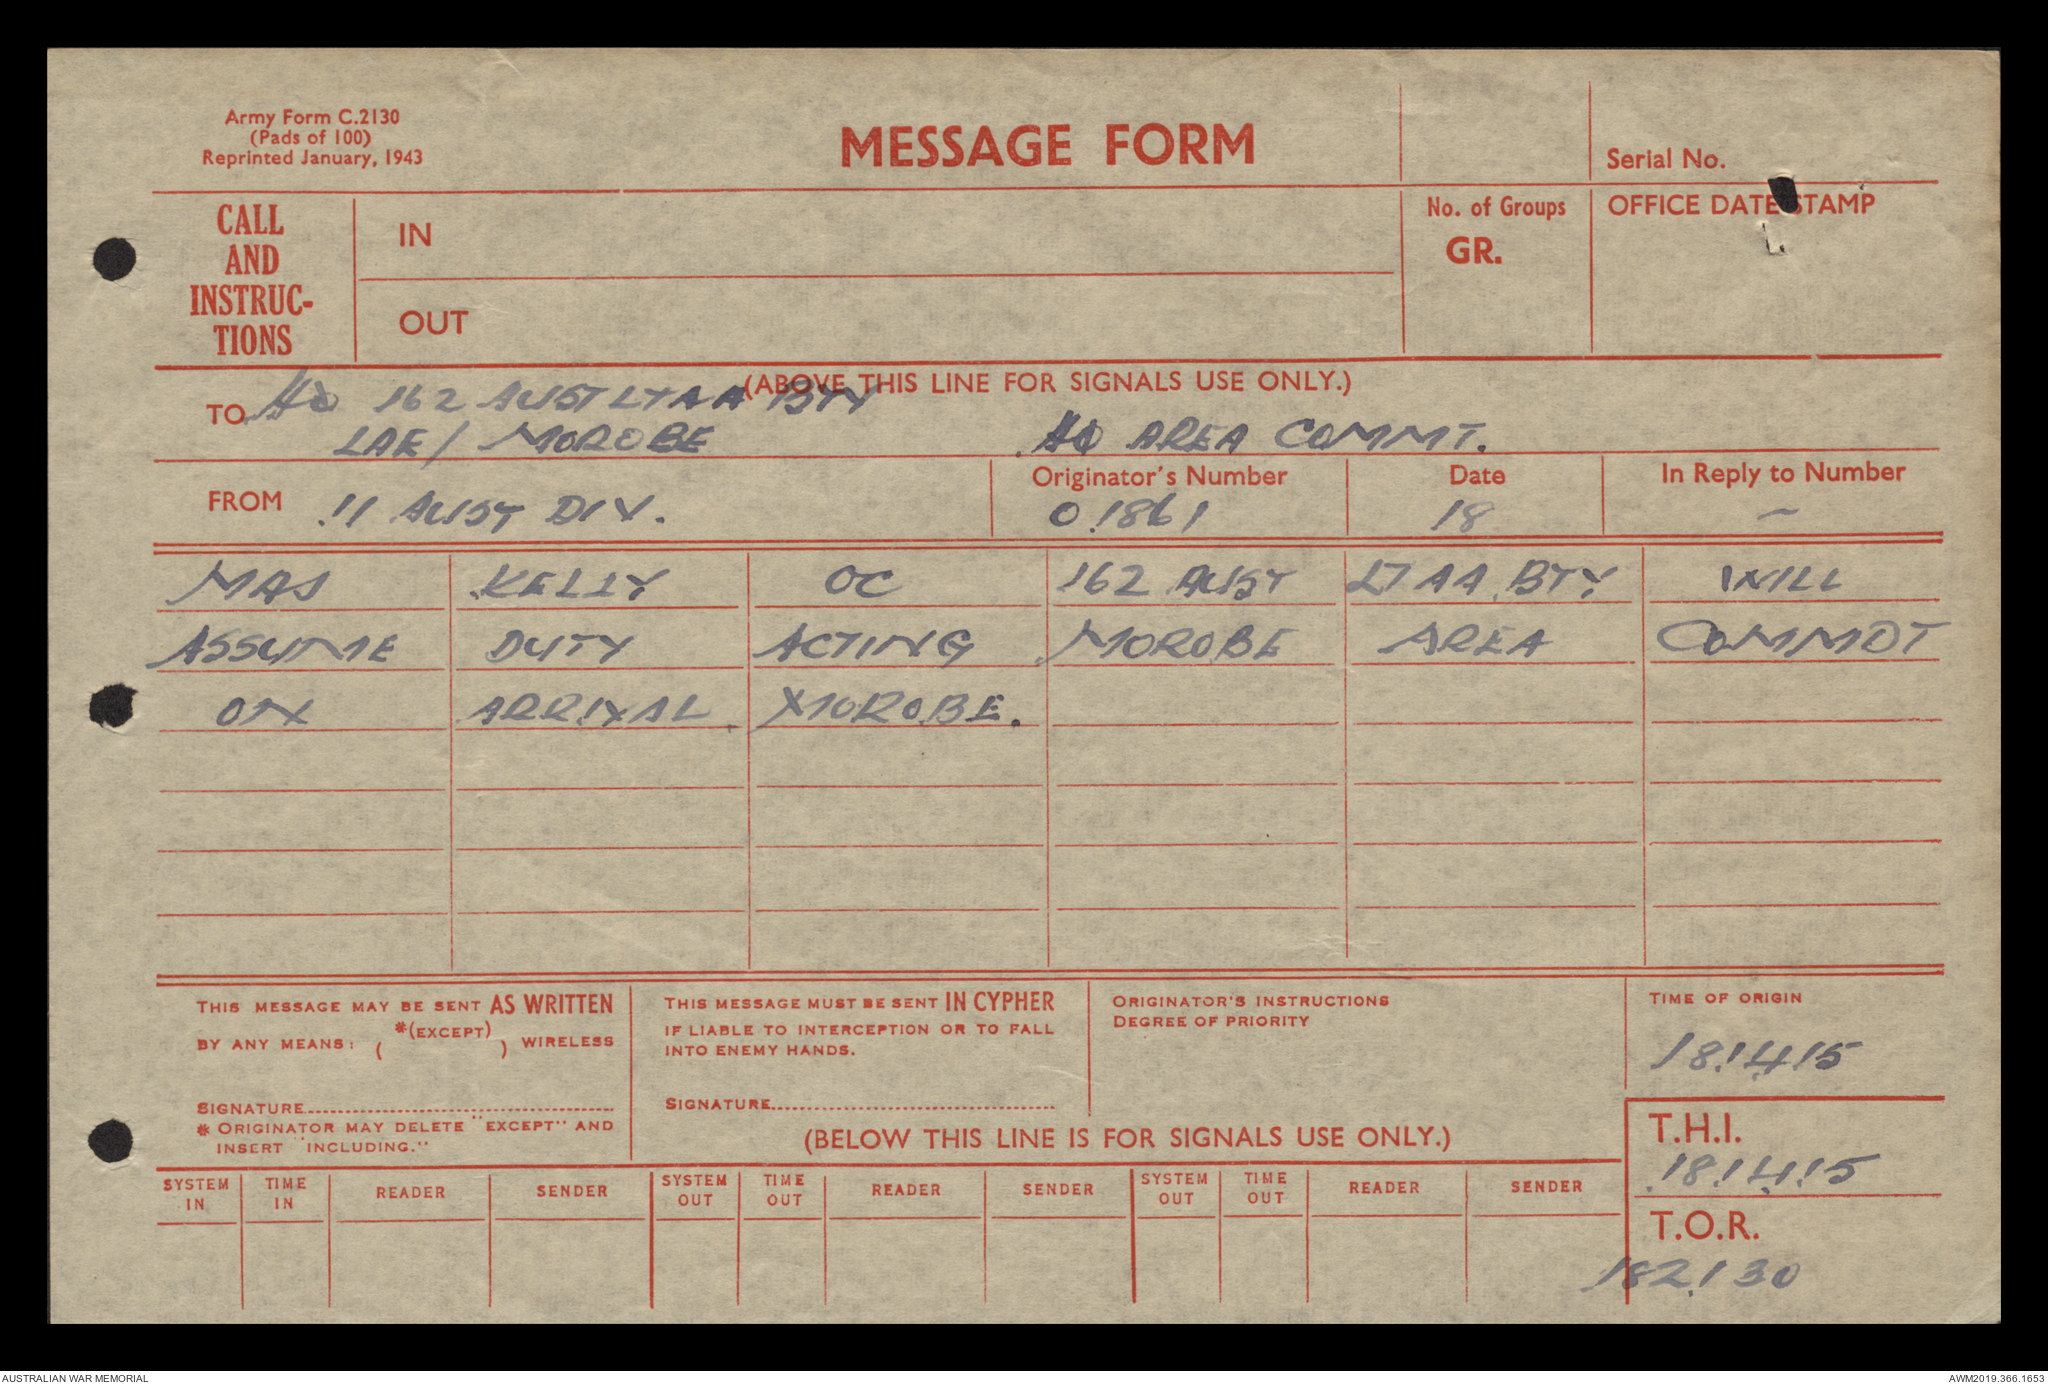 Army Form C.2130
(Pads of 100)
Reprinted January, 1943
MESSAGE FORM
Serial No.
CALL AND INSTRUC-TIONS
IN
OUT
No. of Groups
GR.
OFFICE DATE STAMP
(ABOVE THIS LINE FOR SIGNALS USE ONLY.)
TO HQ 162 AUST LT AA BTY
LAE / MOROBE HQ AREA COMMT.
FROM 11 AUST DIV.
Originator's Number
0.1861
Date
18
In Reply to Number
~
MAJ KELLY OC 162 AUST LT AA BTY WILL
ASSUME DUTY ACTING MOROBE AREA COMMDT
ON ARRIVAL MOROBE.
THIS MESSAGE MAY BE SENT AS WRITTEN
BY ANY MEANS: ( *(EXCEPT) ) WIRELESS
SIGNATURE
* ORIGINATOR MAY DELETE "EXCEPT" AND
INSERT "INCLUDING."
THIS MESSAGE MUST BE SENT IN CYPHER
IF LIABLE TO INTERCEPTION OR TO FALL
INTO ENEMY HANDS.
SIGNATURE
ORIGINATOR'S INSTRUCTIONS
DEGREE OF PRIORITY
(BELOW THIS LINE IS FOR SIGNALS USE ONLY.)
TIME OF ORIGIN
181415
T.H.I.
181415
T.O.R.
182130
SYSTEM IN
TIME IN
READER
SENDER
SYSTEM OUT
TIME OUT
READER
SENDER
SYSTEM OUT
TIME OUT
READER
SENDER
AUSTRALIAN WAR MEMORIAL
AWM2019.366.1653